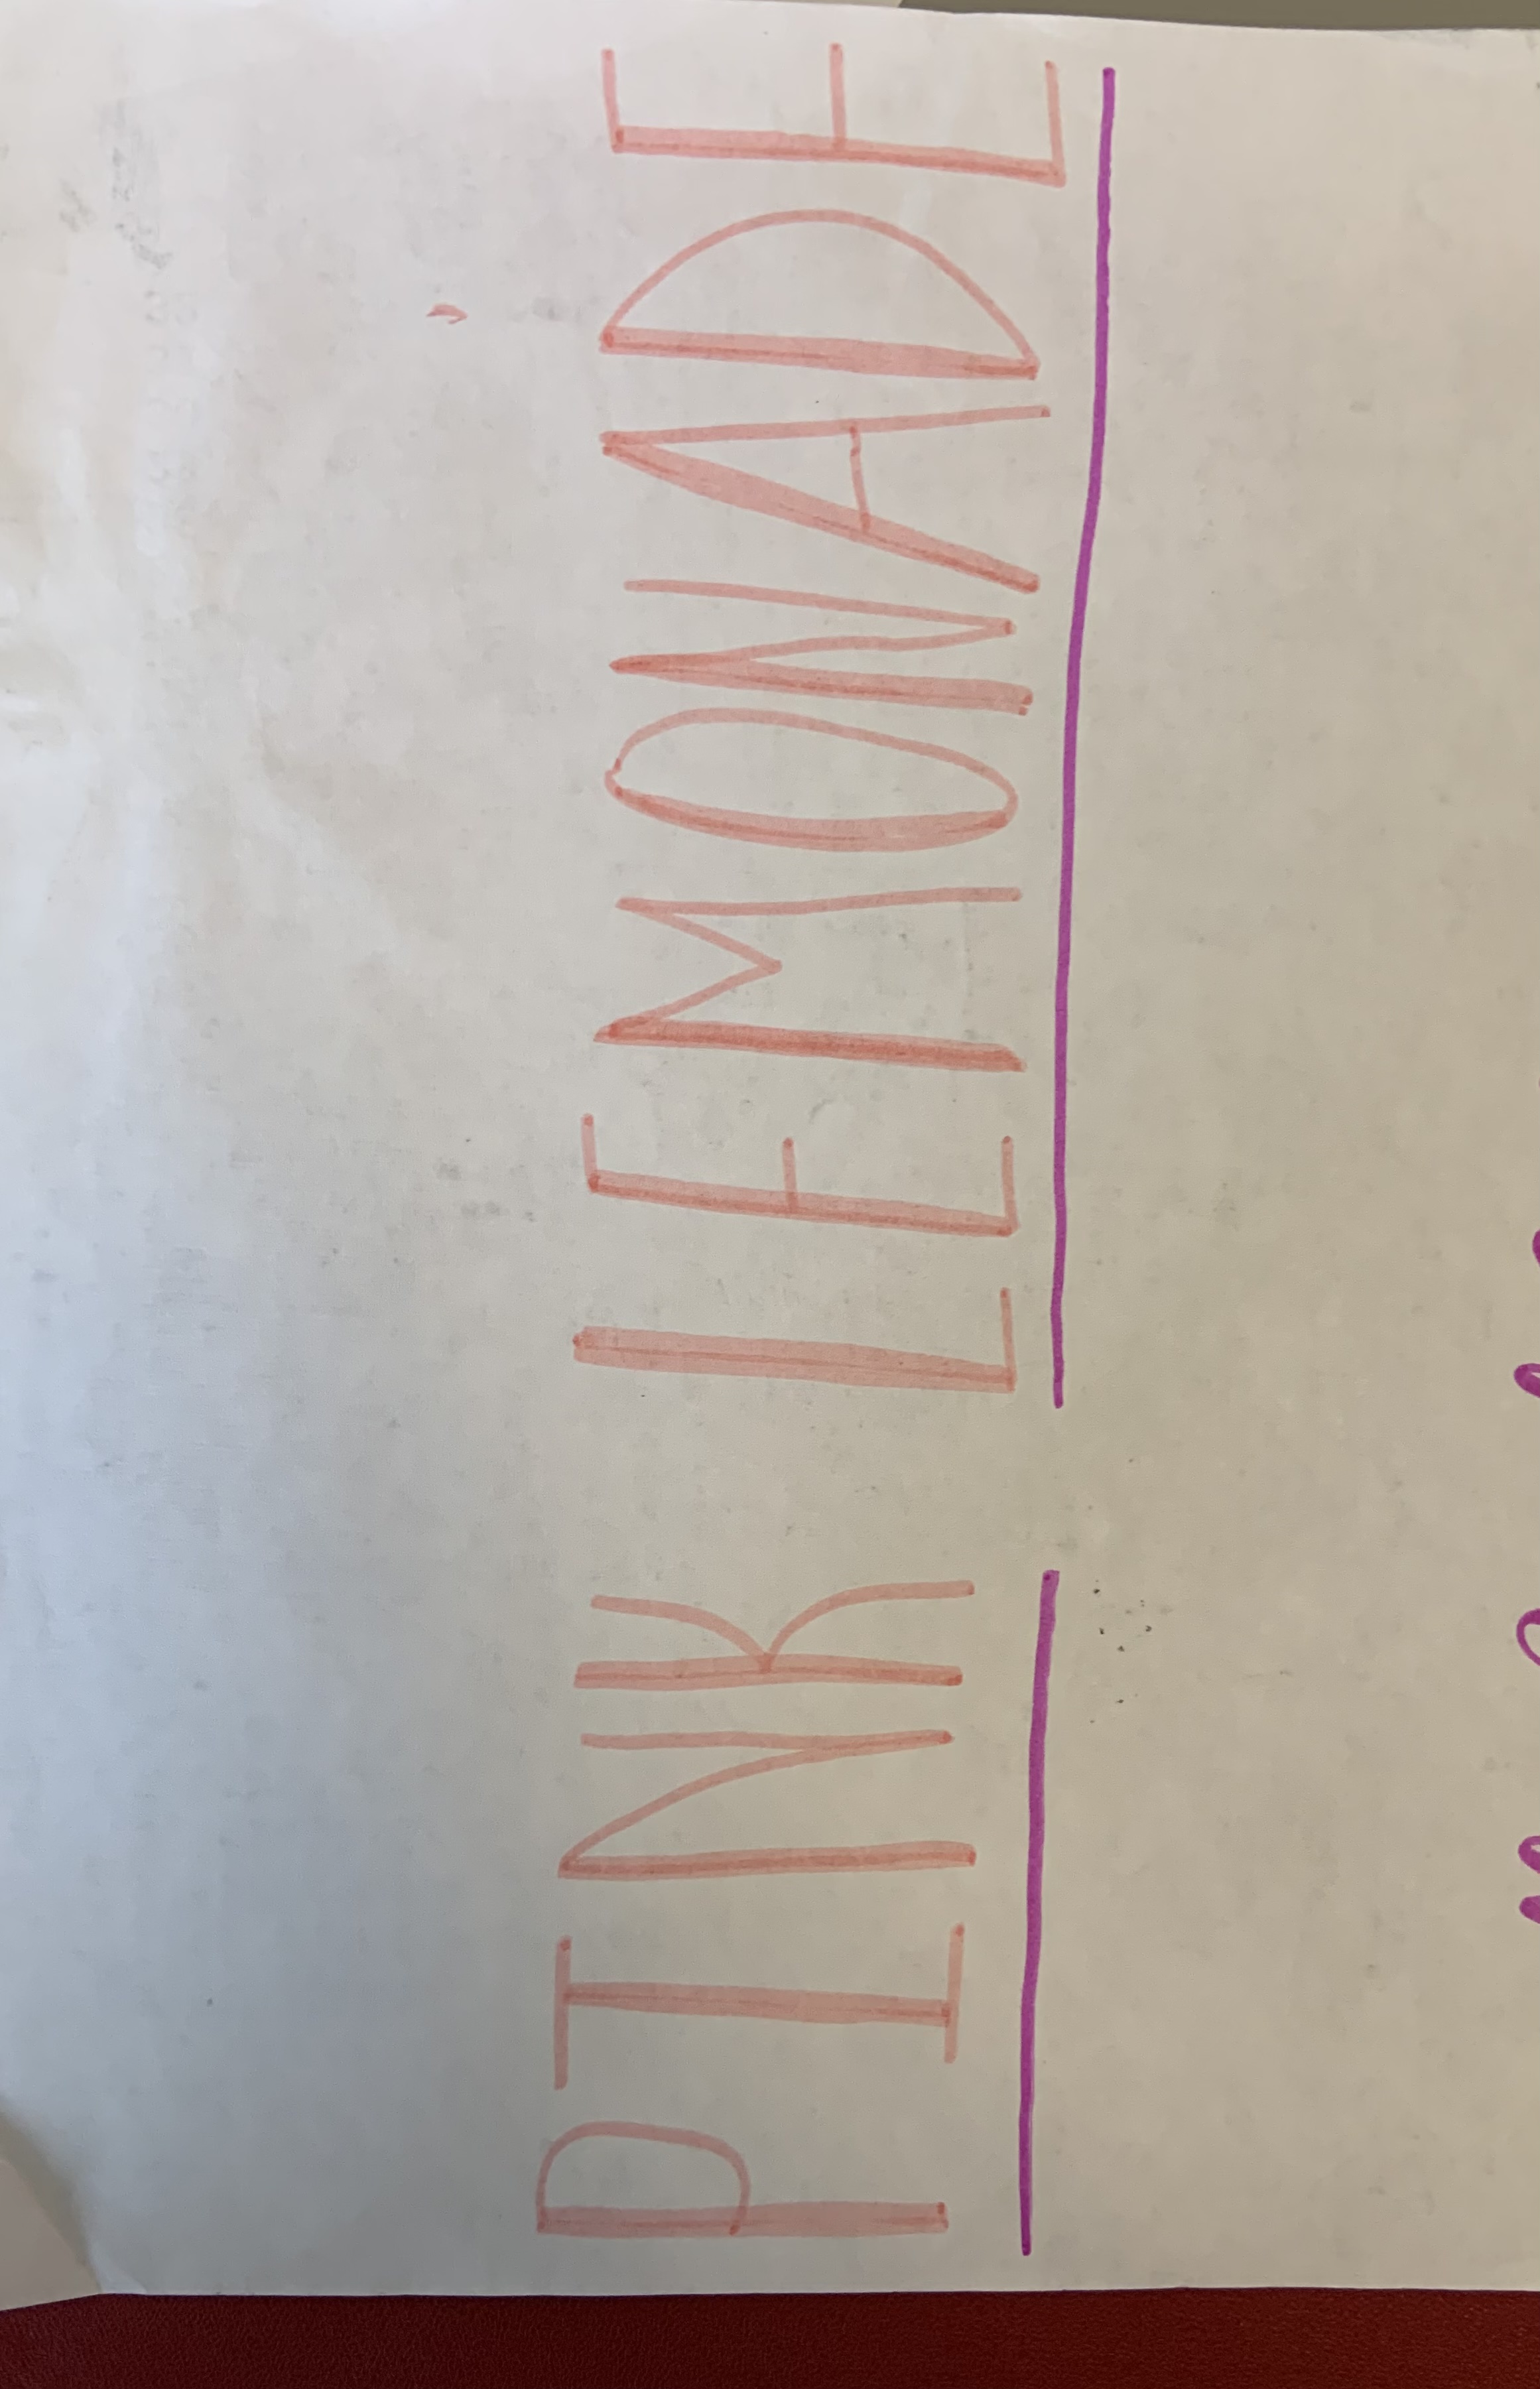 PINK LEMONADE